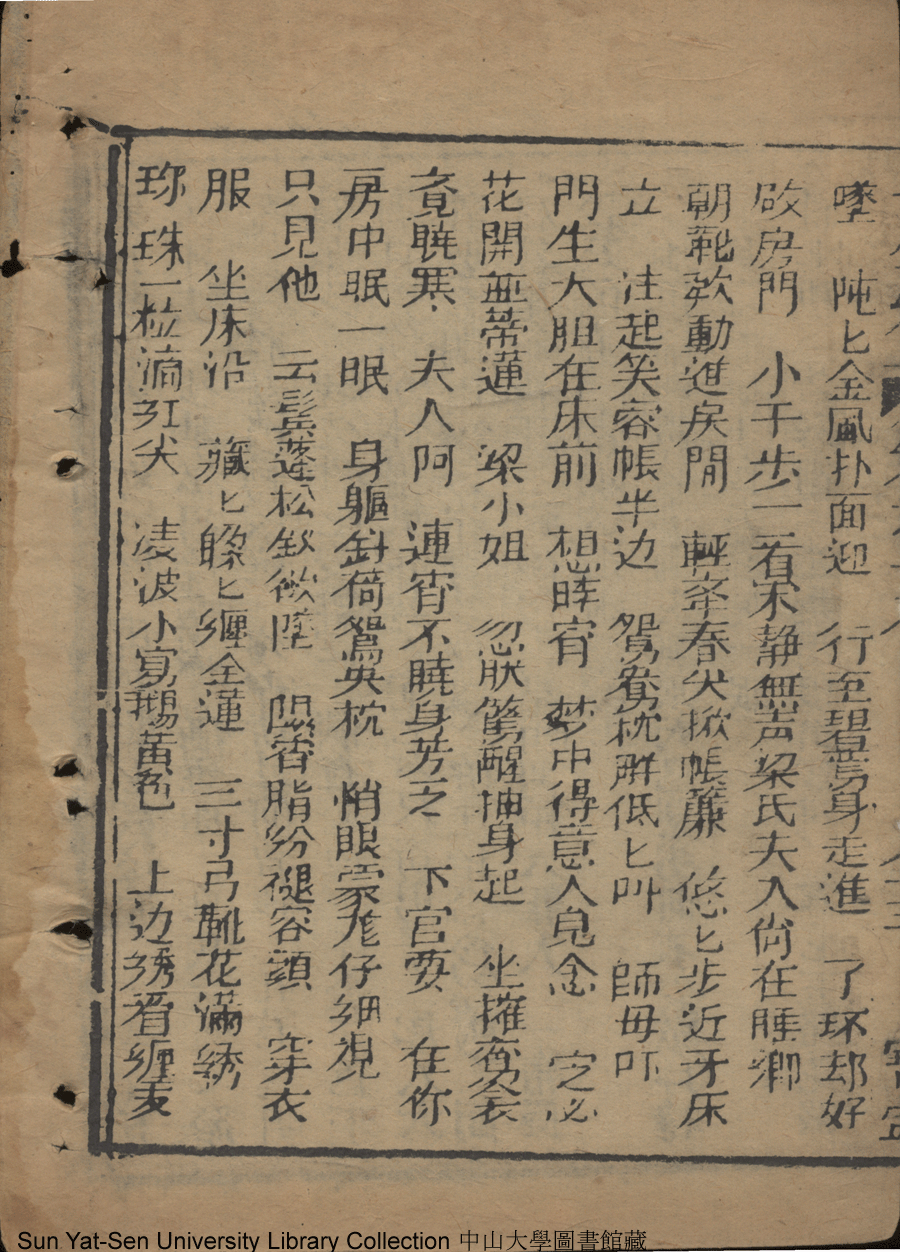 墜 陣匕金風扑面迎 行至碧□身走進 了环却好
啟房門 小干步一看宋静無声梁氏夫人尙在睡鄉
朝靴欵動進房間 輕牽春尖掀帳簾 悠匕步近牙床
立 注起笑容帳半边 鴛鴦枕畔低匕叫 師毋吓
門生大胆在床前 想昨宵 梦中得意人見念 定必
花開並蒂蓮 梁小姐 忽朕驚醒抽身起 坐擁衾
竟曉寒 夫人阿 連宵不曉身劳乏 下官要 在你
房中眠一眠 身軀斜倚鴛央枕 悄眼蒙尨仔細視
只見他 云鬂蓬松釵欲墜 開香脂紛褪容顔 穿衣
服 坐床沿 藏匕躱匕纒金蓮 三寸弓靴花滿綉
珎珠一粒滴紅尖 凌波小寔鵝黄色 上边綉着纒
Sun Yat-Sen University Library Collection 中山大學圖書館藏